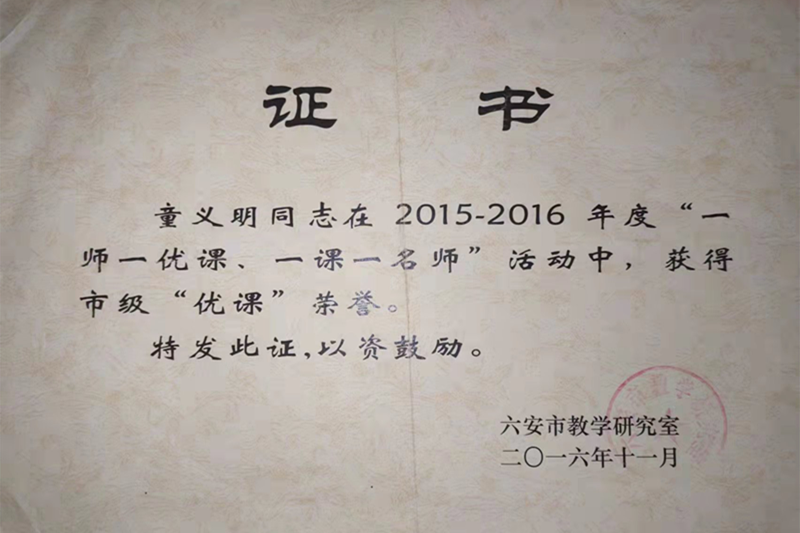 证 书
童义明同志在 2015-2016 年度“一
师一优课、一课一名师”活动中，获得
市级“优课”荣誉。
特发此证，以资鼓励。
六安市教学研究室
二〇一六年十一月